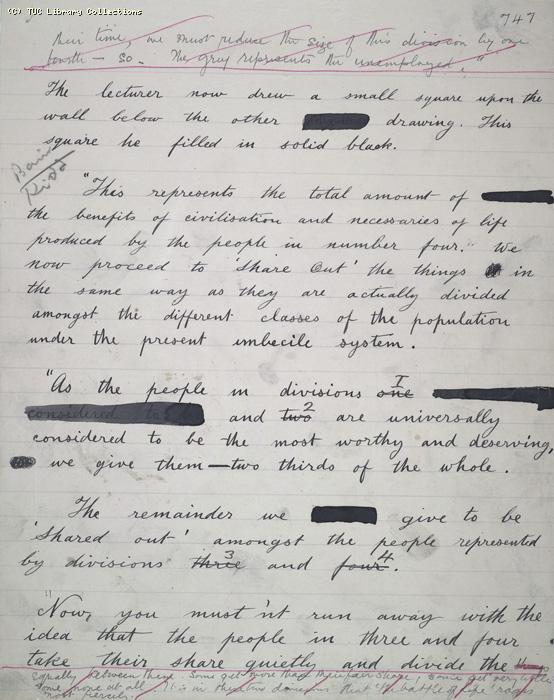 (C) TUC Library Collections
747
their time, one must reduce the size of this division by one
fourth — so. The gray represents the unemployed."
The lecturer now drew a small square upon the
wall below the other drawing. This
square he filled in solid black.
"This represents the total amount of
the benefits of civilisation and necessaries of life
produced by the people in number four." We
now proceed to 'Share Out' the things in
the same way as they are actually divided
amongst the different classes of the population
under the present imbecile system.
"As the people in divisions one I
considered to and two 2 are universally
considered to be the most worthy and deserving,
we give them—two thirds of the whole.
The remainder we give to be
'Shared out' amongst the people represented
by divisions three 3 and four 4.
"Now, you must'nt run away with the
idea that the people in three and four
take their share quietly and divide the
equally between them. Some get more than their fair share, some get very little
some none at all. It is in these divisions that the battle of life rages
most fiercely